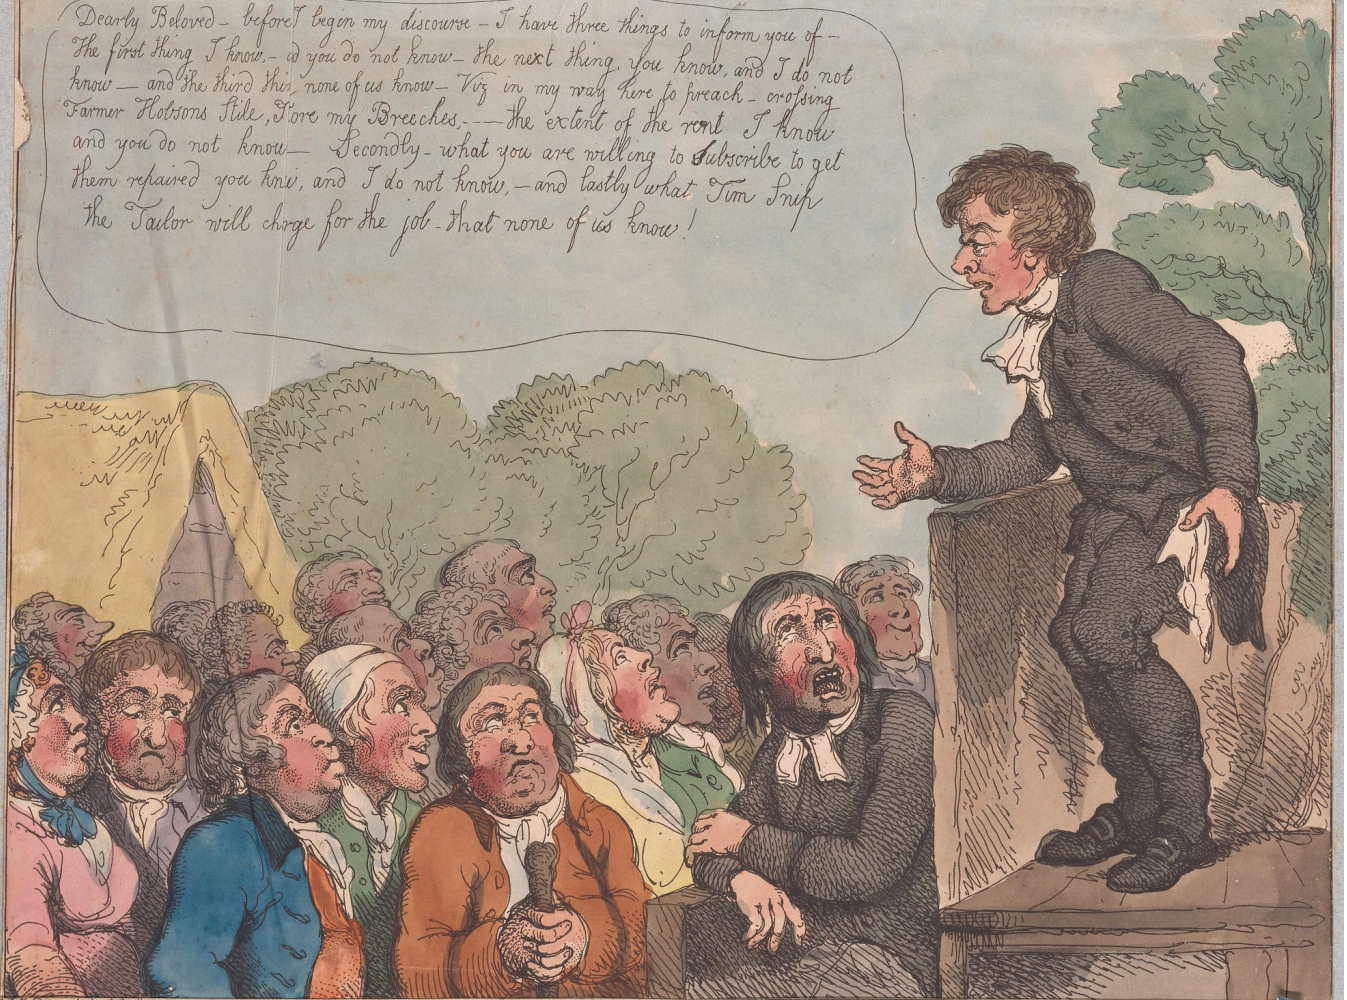 Dearly Beloved - before I begin my discourse - I have three things to inform you of -
The first thing I know, - d you do not know - the next thing, you know, and I do not
know — and the third this, none of us know - Viz in my way here to preach - crossing
Farmer Hobsons Stile, Tore my Breeches, - — the extent of the rent I know
and you do not know — Secondly - what you are willing to Subscribe to get
them repaired you kni, and I do not know, - and lastly what Tim Snip
the Tailor will chrge for the job - that none of us know!